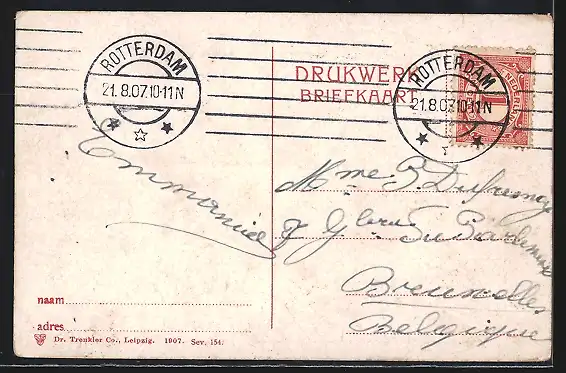 ROTTERDAM
21.8.07.10-11N
ROTTERDAM
21.8.07.10-11N
NEDERLAND
1
DRUKWERK
BRIEFKAART
Emmanuel
Mme
Bruxelles
Belgique
naam
adres
Dr. Trenkler Co., Leipzig. 1907. Sev. 154.